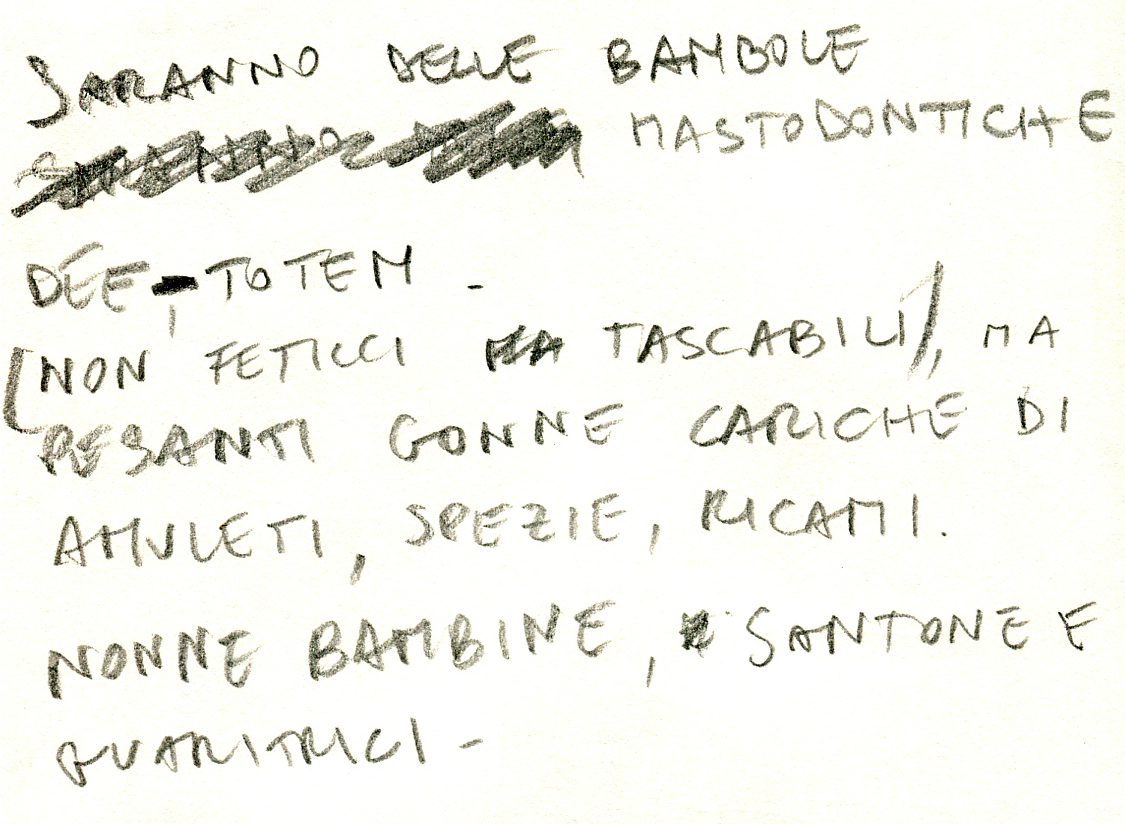 SARANNO DELLE BAMBOLE
MASTODONTICHE
DEE-TOTEM -
(NON FETICCI TASCABILI), MA
PESANTI GONNE CARICHE DI
AMULETI, SPEZIE, RICAMI.
NONNE BAMBINE, SANTONE E
GUARITRICI -